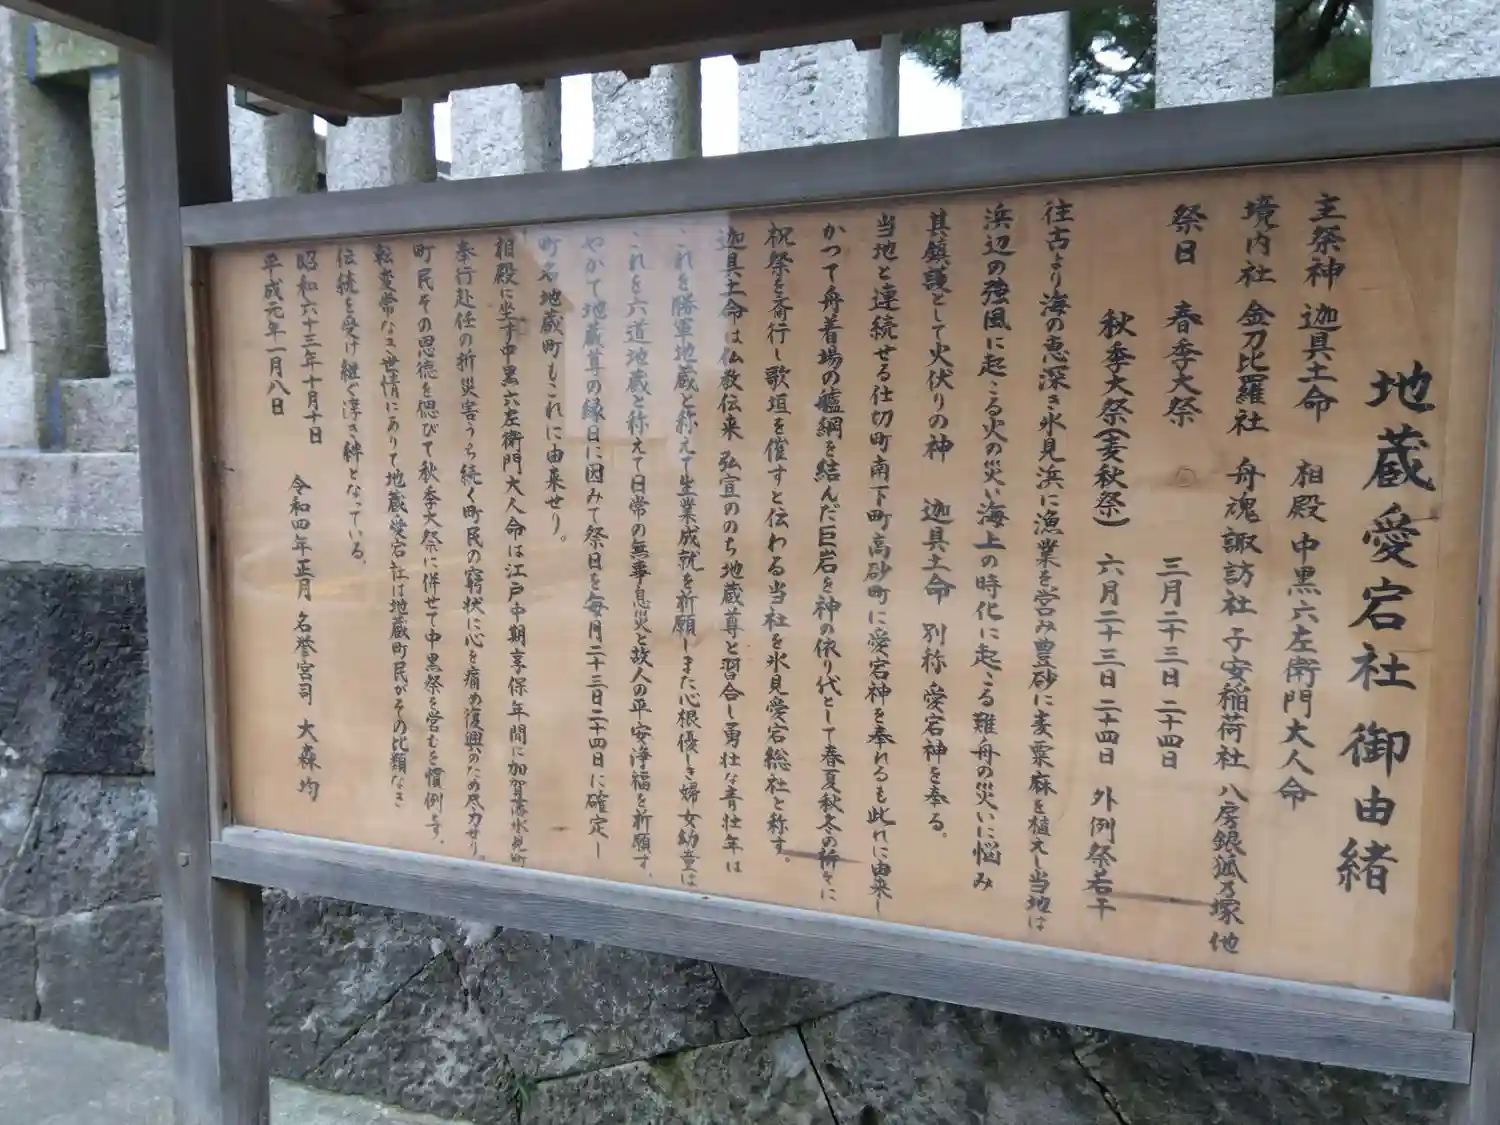 地蔵愛宕社御由緒
主祭神 迦具土命 相殿 中黒六左衛門大人命
境内社 金刀比羅社 舟魂諏訪社 子安稲荷社 八房銀狐乃塚 他
祭日 春季大祭 三月二十三日二十四日
秋季大祭(麦秋祭) 六月二十三日二十四日 外例祭若干
往古より海の恵深き氷見浜に漁業を営み豊砂に麦粟麻を植えし当地は
浜辺の強風に起こる火の災い海上の時化に起こる難舟の災いに悩み
其鎮護として火伏りの神 迦具土命 別称愛宕神を奉る。
当地と連続せる仕切町南下町高砂町に愛宕神を奉れるも此れに由来し
かつて舟着場の艫綱を結んだ巨岩を神の依り代として春夏秋冬の折々に
祝祭を斎行し歌垣を催すと伝わる当社を氷見愛宕総社と称す。
迦具土命は仏教伝来 弘宣ののち地蔵尊と習合し勇壮な青壮年は
これを勝軍地蔵と称えて生業成就を祈願しまた心根優しき婦女幼童は
これを六道地蔵と称えて日常の無事息災と故人の平安浄福を祈願す。
やがて地蔵尊の縁日に因みて祭日を毎月二十三日二十四日に確定し
町名地蔵町もこれに由来せり。
相殿に坐す中黒六左衛門大人命は江戸中期享保年間に加賀藩氷見町
奉行赴任の折災害うち続く町民の窮状に心を痛め復興のため尽力せり。
町民その恩徳を偲びて秋季大祭に併せて中黒祭を営むを慣例とす。
転変常なき世情にありて地蔵愛宕社は地蔵町民がその比類なき
伝統を受け継ぐ淳き絆となっている。
昭和六十三年十月十日 令和四年正月 名誉宮司 大森均
平成元年一月八日